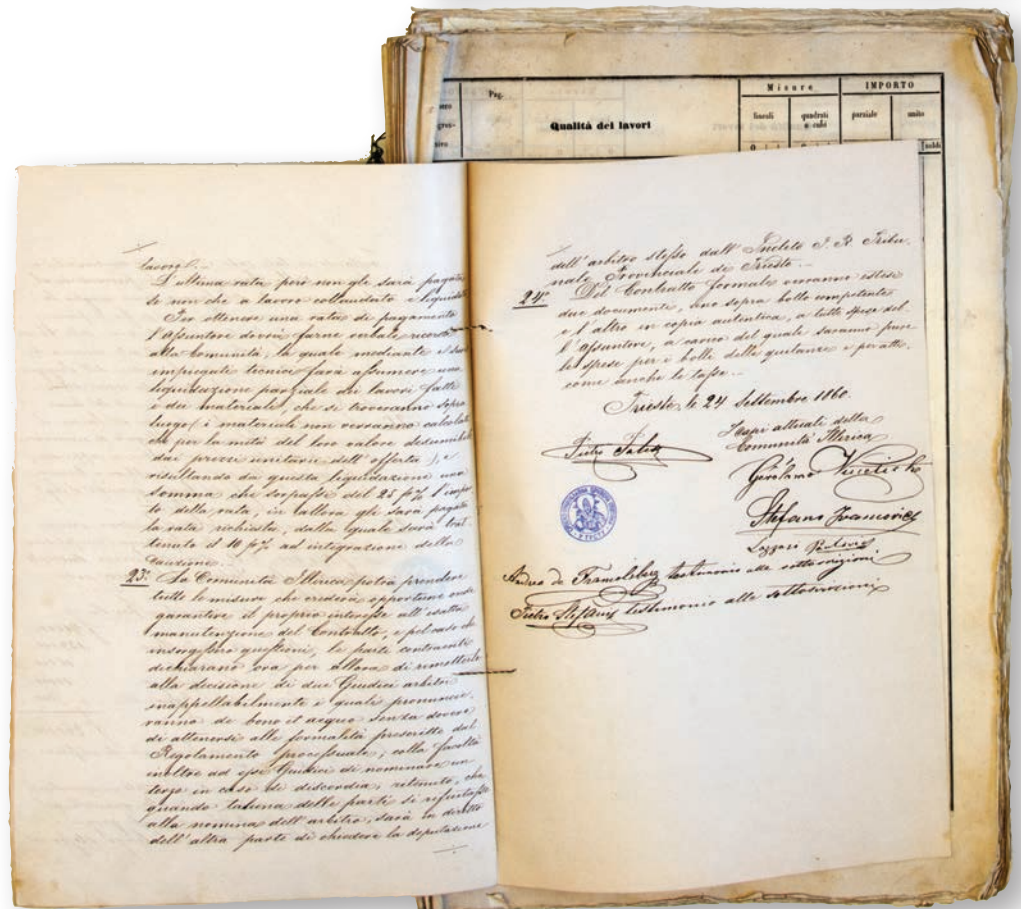 Pag.
Qualità dei lavori
Misure
IMPORTO
lineali
quadrati o cubi
parziale
unito
lavoro.
L'ultima rata però non gli sarà pagata
se non che a lavoro collaudato e liquidato
Per ottenere una rata di pagamento
l'assuntore dovrà farne verbale ricerca
alla Comunità, la quale mediante i suoi
impiegati tecnici farà assumere una
liquidazione parziale dei lavori fatti
e dei materiali, che si troveranno sopra
luogo (i materiali non verranno calcolati
che per la metà del loro valore desumibile
dai prezzi unitarii dell'offerta), e
risultando da questa liquidazione una
somma che sorpassi del 25 p% l'impor
to della rata, in allora gli sarà pagata
la rata richiesta, dalla quale sarà trat
tenuto il 10 p% ad integrazione della
Cauzione.
23. La Comunità Illirica potrà prendere
tutte le misure che crederà opportune onde
garantire il proprio interesse all'esatta
manutenzione del Contratto, e pel caso che
insorgessero questioni, le parti contraenti
dichiarano ora per allora di rimetterle
alla decisione di due Giudici arbitri
inappellabilmente i quali pronuncie.
ranno de bono et aequo senza dovere
di attenersi alle formalità prescritte dal
Regolamento processuale; colla facoltà
inoltre ad essi Giudici di nominare un
terzo in caso di discordia; ritenuto, che
quando taluna delle parti si rifiutasse
alla nomina dell'arbitro, sarà in diritto
dell'altra parte di chiedere la deputazione
dell'arbitro stesso dall'Inclito I. R. Tribu.
nale Provinciale di Trieste..
24. Del Contratto formale verranno estesi
due documenti, uno sopra bollo competente
e l'altro in copia autentica, a tutte spese del.
l'assuntore, a carico del quale saranno pure
le spese per i bolli delle quitanze e per atti.
come anche le tasse..
Trieste, li 24 Settembre 1860.
I Capi attuali della
Comunità Illirica
Pietro
Girolamo Vucetich
Stefano Ivanovich
Lazzari
Andrea de testimonio alle sottoscrizioni
Pietro testimonio alle sottoscrizioni